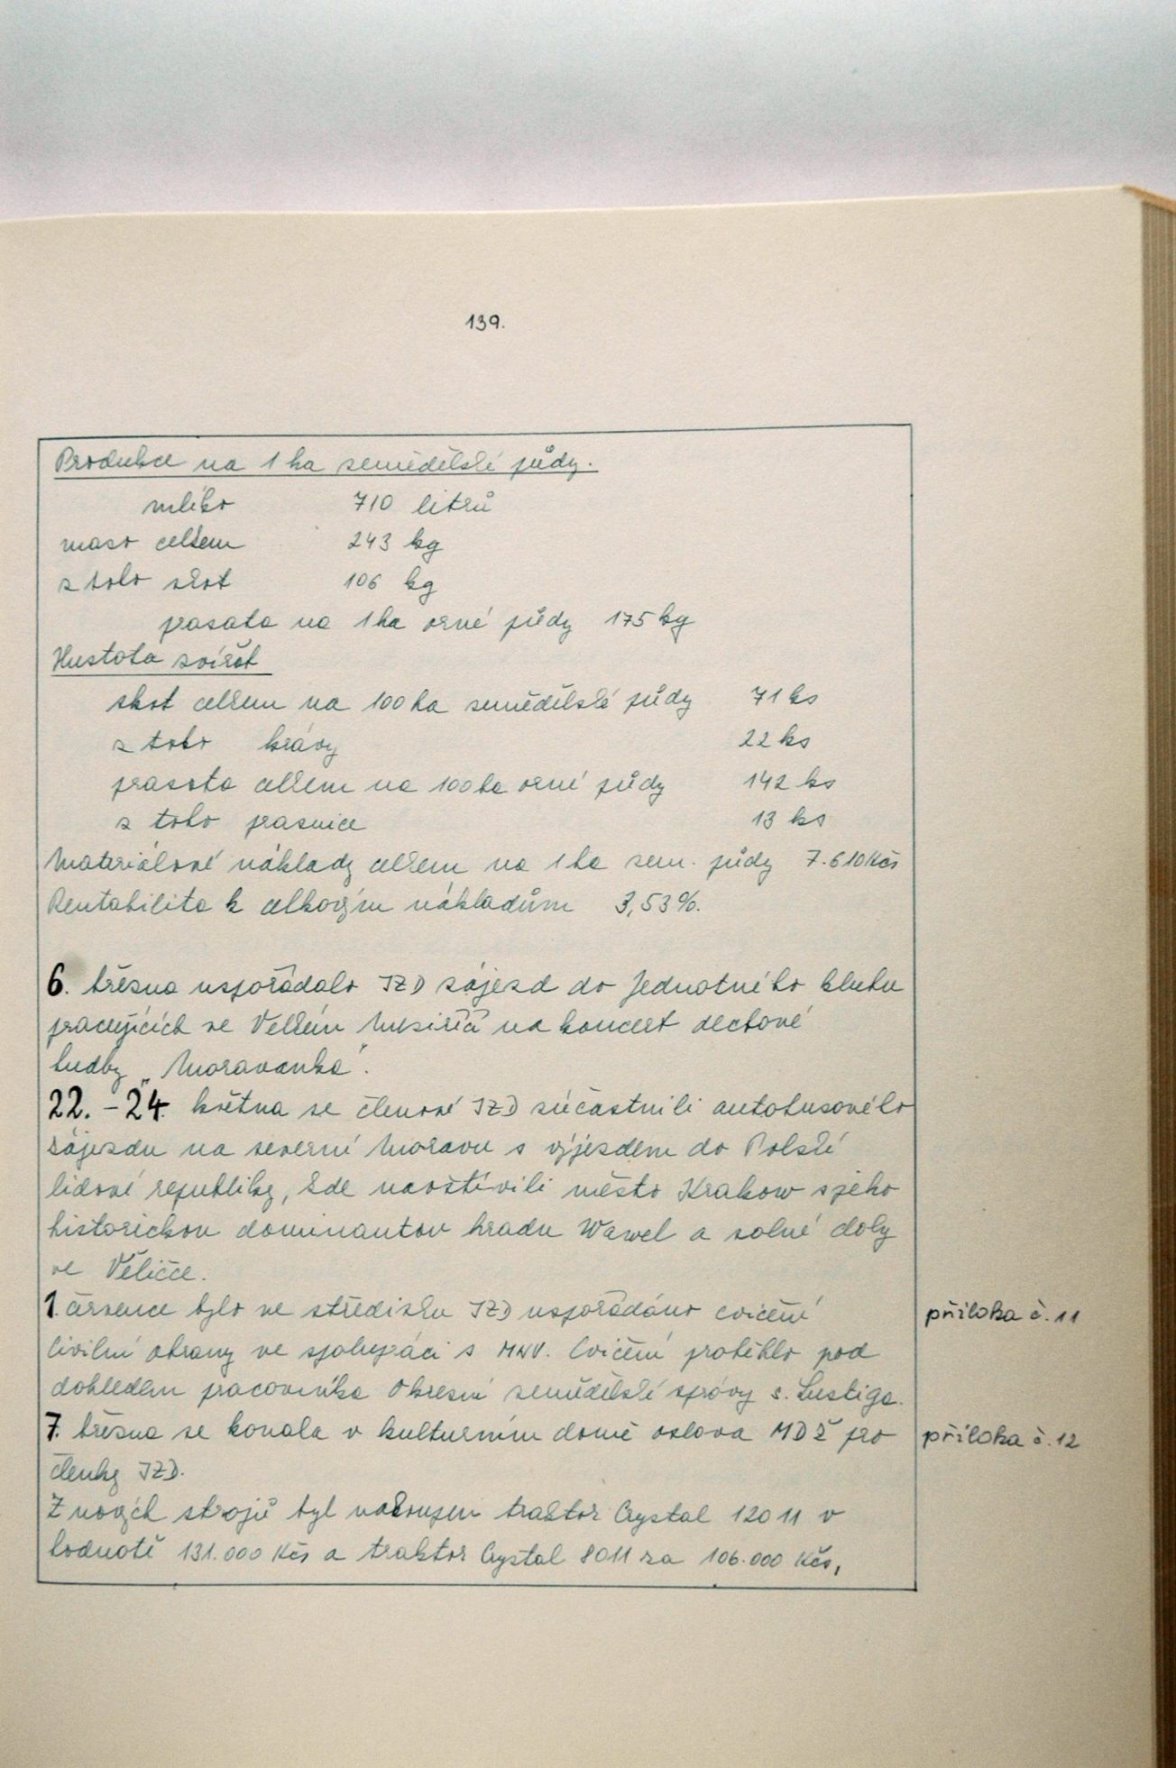 139.
Produkce na 1 ha zemědělské půdy.
mléko 710 litrů
maso celkem 243 kg
z toho skot 106 kg
prasata na 1 ha orné půdy 175 kg
Hustota zvířat
skot celkem na 100 ha zemědělské půdy 71 ks
z toho krávy 22 ks
prasata celkem na 100 ha orné půdy 142 ks
z toho prasnice 13 ks
Materiálové náklady celkem na 1 ha zem. půdy 7.610 Kčs
Rentabilita k celkovým nákladům 3,53 %.
6. března uspořádalo JZD zájezd do Jednotného klubu
pracujících ve Velkém Meziříčí na koncert dechové
hudby "Moravanka".
22. - 24. května se členové JZD zúčastnili autobusového
zájezdu na severní Moravu s výjezdem do Polské
lidové republiky, kde navštívili město Krakow s jeho
historickou dominantou hradu Wawel a solné doly
ve Věličce.
1. července bylo ve středisku JZD uspořádáno cvičení příloha č. 11
civilní obrany ve spolupráci s MNV. Cvičení proběhlo pod
dohledem pracovníka Okresní zemědělské správy s. Lustiga.
7. března se konala v kulturním domě oslava MDŽ pro příloha č. 12
členky JZD.
Z nových strojů byl zakoupen traktor Crystal 12011 v
hodnotě 131.000 Kčs a traktor Crystal 8011 za 106.000 Kčs,